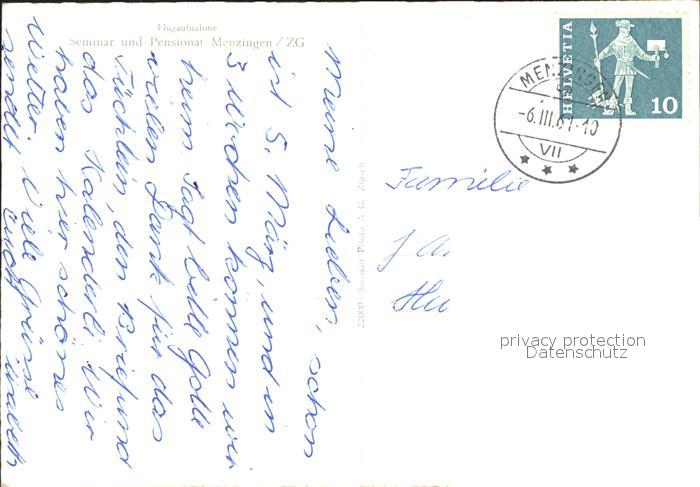 Flugaufnahme
Seminar und Pensionat Menzingen/ZG
Meine Lieben, schon
ist 5. März, und in
3 Wochen können wir
heim. Sagt bitte Gotte
vielen Dank für das
Tüchlein, den Brief und
das Kalenderli. Wir
haben hier schönes
Wetter. Viele Grüsse
sendet euch
22000 Swissair Photo A G. Zürich
HELVETIA
10
MENZINGEN
-6.III.61-10
VII
Familie
privacy protection
Datenschutz